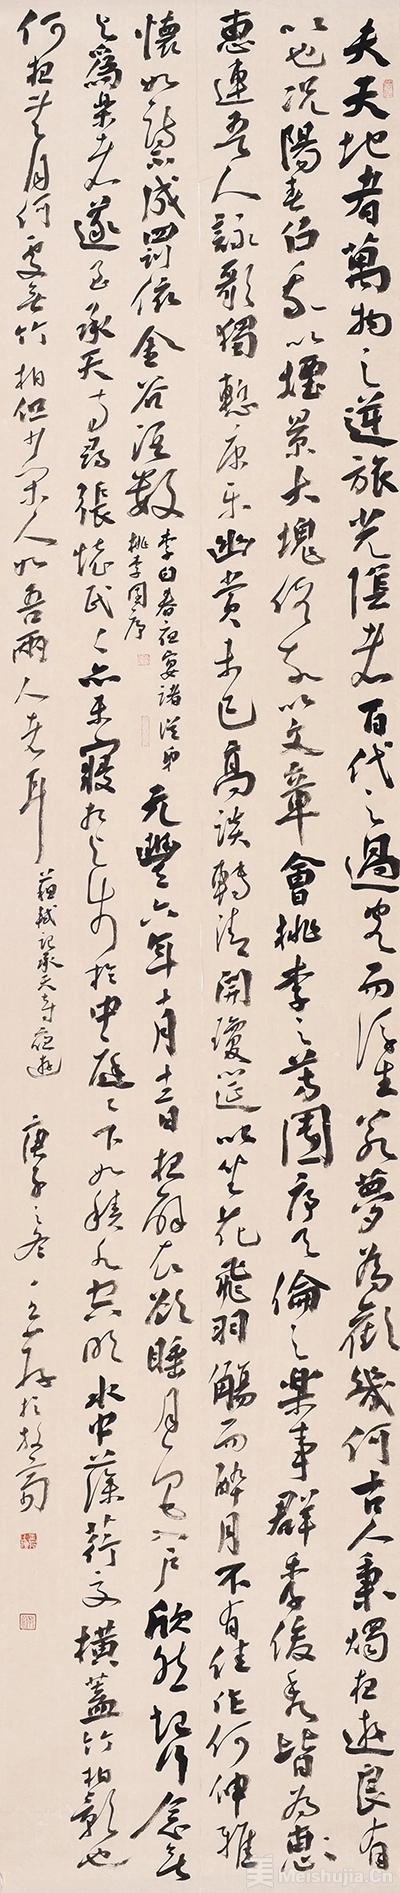 夫天地者萬物之逆旅光陰者百代之過客而浮生若夢為歡幾何古人秉燭夜遊良有
以也況陽春召我以煙景大塊假我以文章會桃李之芳園序天倫之樂事群季俊秀皆為惠
惠連吾人詠歌獨慙康樂幽賞未已高談轉清開瓊筵以坐花飛羽觴而醉月不有佳作何伸雅
懷如詩不成罰依金谷酒數
李白春夜宴諸從弟
桃李園序
元豐六年十月十二日夜解衣欲睡月色入戶欣然起行念無
與為樂者遂至承天寺尋張懷民民亦未寢相與步於中庭庭下如積水空明水中藻荇交橫蓋竹柏影也
何夜無月何處無竹柏但少閑人如吾兩人者耳
蘇軾記承天寺夜遊
庚子之冬
Meishujia.Cn